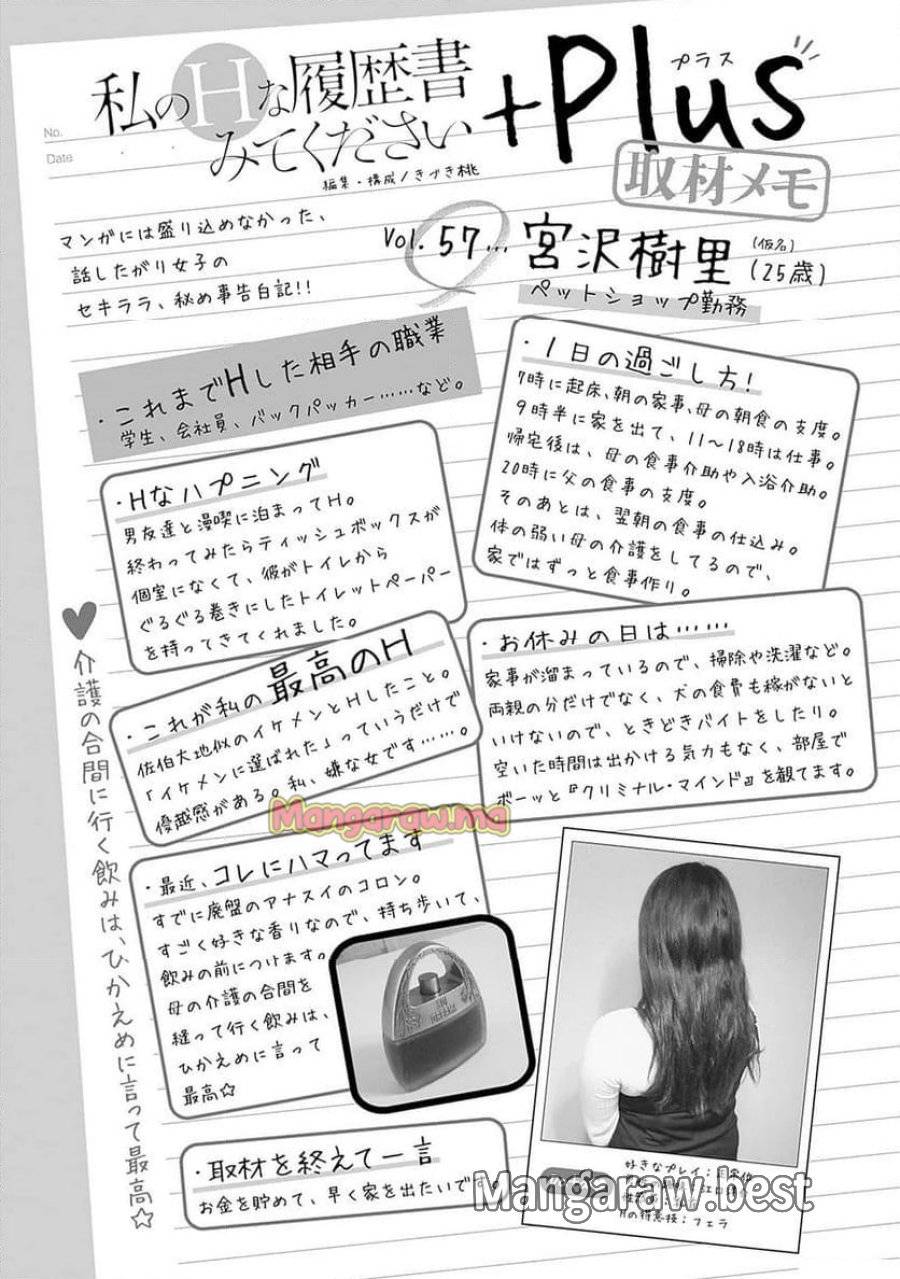 No.
Date
私のHな履歴書
みてください
+Plus
プラス
編集・構成/きづき桃
取材メモ
マンガには盛り込めなかった、
話したがり女子の
セキララ、秘め事告白記!!
Vol.57…宮沢樹里
(仮名)
(25歳)
ペットショップ勤務
・これまでHした相手の職業
学生、会社員、バックパッカー……など。
・1日の過ごし方!
7時に起床、朝の家事、母の朝食の支度。
9時半に家を出て、11〜18時は仕事。
帰宅後は、母の食事介助や入浴介助。
20時に父の食事の支度。
そのあとは、翌朝の食事の仕込み。
体の弱い母の介護をしてるので、
家ではずっと食事作り。
・Hなハプニング
男友達と漫喫に泊まってH。
終わってみたらティッシュボックスが
個室になくて、彼がトイレから
ぐるぐる巻きにしたトイレットペーパー
を持ってきてくれました。
・お休みの日は……
家事が溜まっているので、掃除や洗濯など。
両親の分だけでなく、犬の食費も稼がないと
いけないので、ときどきバイトをしたり。
空いた時間は出かける気力もなく、部屋で
ボーッと『クリミナル・マインド』を観てます。
・これが私の最高のH
佐伯大地似のイケメンとHしたこと。
「イケメンに選ばれた」っていうだけで
優越感がある。私、嫌な女です……。
Mangaraw.ma
・最近、コレにハマってます
すでに廃盤のアナスイのコロン。
すごく好きな香りなので、持ち歩いて、
飲みの前につけます。
母の介護の合間を
縫って行く飲みは、
ひかえめに言って
最高☆
♥介護の合間に行く飲みは、ひかえめに言って最高☆
・取材を終えて一言
お金を貯めて、早く家を出たいです
好きなプレイ:
Hの得意技:フェラ
Mangaraw.best